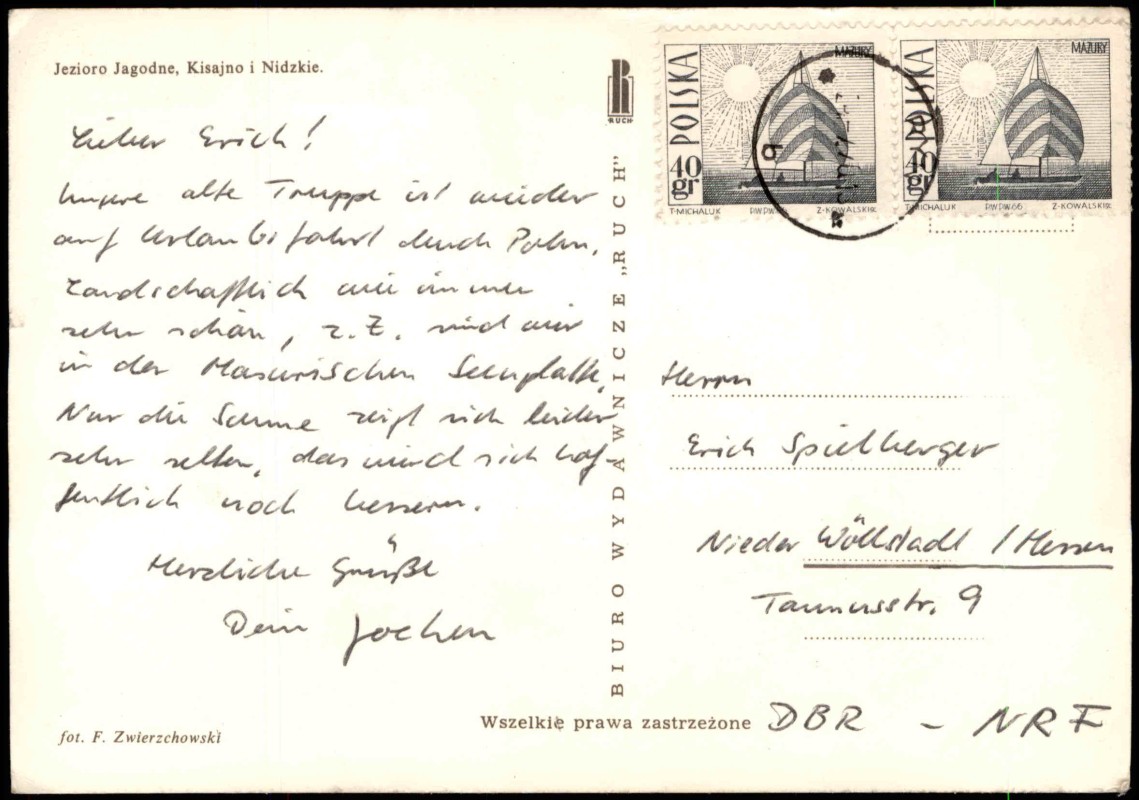 Jezioro Jagodne, Kisajno i Nidzkie.
Lieber Erich!
Unsere alte Truppe ist wieder
auf Urlaubsfahrt durch Polen.
Landschaftlich wie immer
sehr schön, z. Z. sind wir
in der Masurischen Seenplatte,
Nur die Sonne zeigt sich leider
sehr selten, das wird sich hof-
fentlich noch bessern.
Herzliche Grüße
Dein Jochen
fot. F. Zwierzchowski
R
RUCH
BIURO WYDAWNICZE „RUCH"
Wszelkie prawa zastrzeżone
POLSKA
MAZURY
40 gr
T·MICHALUK PWPW66 Z·KOWALSKI
POLSKA
MAZURY
40 gr
T·MICHALUK PWPW66 Z·KOWALSKI
Herrn
Erich Spielberger
Nieder Wöllstadt / Hessen
Taunusstr. 9
DBR - NRF